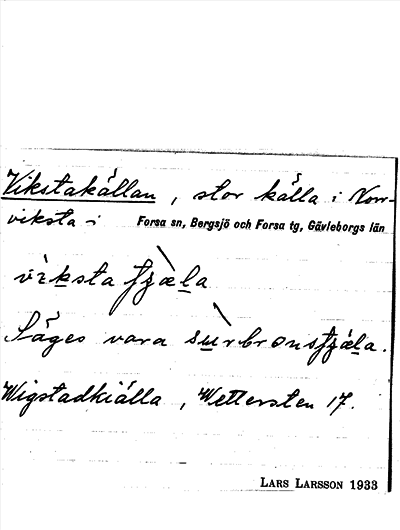 Vikstakällan, stor källa i Norr-
viksta i Forsa sn, Bergsjö och Forsa tg, Gävleborgs län
Säges vara
Wigstadkiälla, Wettersten 17.
LARS LARSSON 1933